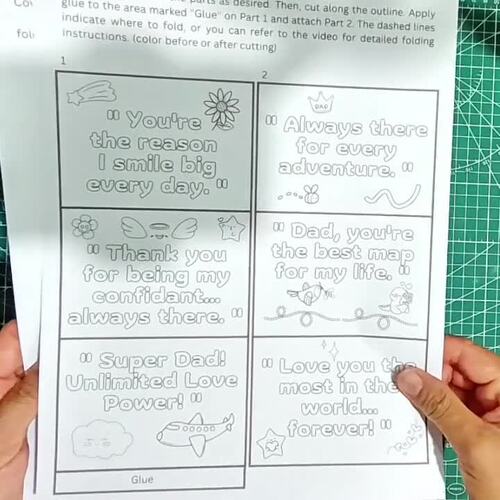 parts as desired. Then, cut along the outline. Apply
glue to the area marked "Glue" on Part 1 and attach Part 2. The dashed lines
indicate where to fold, or you can refer to the video for detailed folding
instructions. (color before or after cutting)
1
" You're
the reason
I smile big
every day. "
" Thank you
for being my
confidant...
always there. "
" Super Dad!
Unlimited Love
Power! "
Glue
2
DAD
" Always there
for every
adventure. "
" Dad, you're
the best map
for my life. "
" Love you the
most in the
world...
forever! "